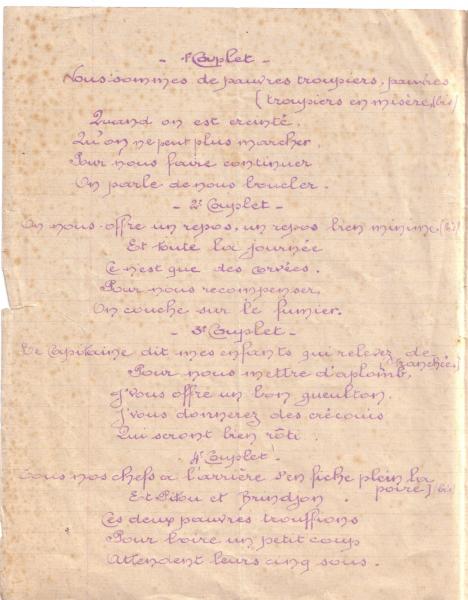 - 1er Couplet -
Nous sommes de pauvres troupiers, pauvres
(troupiers en misère,(bis)
Quand on est ereinté.
Qu'on ne peut plus marcher,
Pour nous faire continuer
On parle de nous boucler.
- 2e Couplet -
On nous offre un repos, un repos bien minime (bis)
Et toute la journée
Ce n'est que des corvées.
Pour nous recompenser,
On couche sur le fumier.
- 3e Couplet -
Le Capitaine dit mes enfants qui relevez de
tranchées)
Pour nous mettre d'aplomb,
J'vous offre un bon gueulton.
J'vous donnerez des
Qui seront bien rôti.
4e Couplet
Tous nos chefs a l'arrière s'en fiche plein la
poire) bis)
Et Pitou et Brindjon.
Ces deux pauvres trouffions
Pour boire un petit coup
Attendent leurs cinq sous.